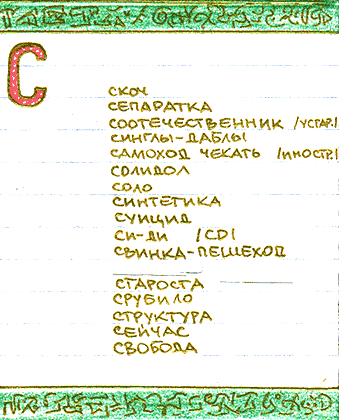 С
СКОЧ
СЕПАРАТКА
СООТЕЧЕСТВЕННИК /УСТАР./
СИНГЛЫ-ДАБЛЫ
САМОХОД ЧЕКАТЬ /ИНОСТР./
СОЛИДОЛ
СОЛО
СИНТЕТИКА
СУИЦИД
СИ-ДИ /CD/
СВИНКА-ПЕШЕХОД
СТАРОСТА
СРУБИЛО
СТРУКТУРА
СЕЙЧАС
СВОБОДА